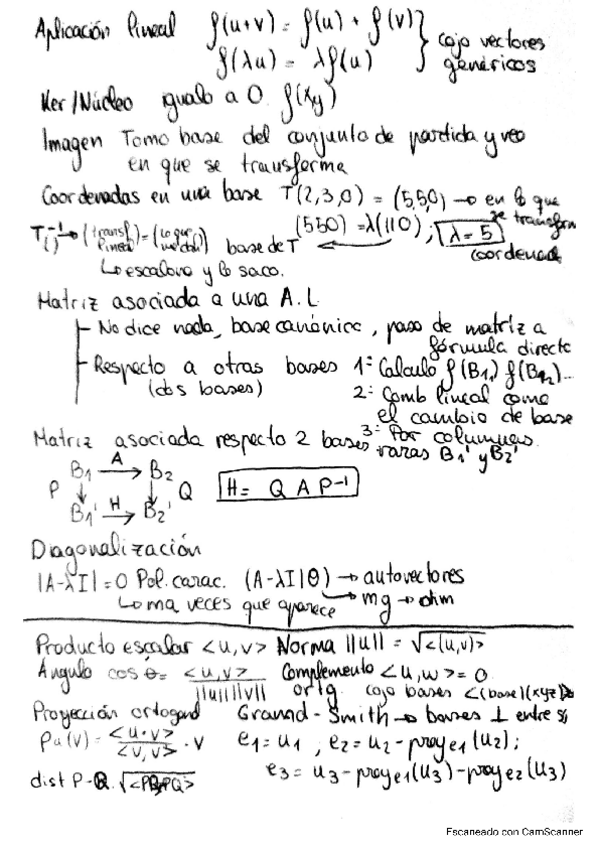 Aplicación lineal f(u+v) = f(u) + f(v) } cojo vectores
f(λu) = λf(u) genéricos
Ker/Núcleo igualo a 0. f(xy)
Imagen Tomo base del conjunto de partida y veo
en que se transforma
Coordenadas en una base T(2,3,0) = (5,5,0) → en lo que
se transform
(550) = λ(110); λ = 5
coordenad
T⁻¹() → (transf lineal) = (lo que me dan) base de T
↳ escalono y lo saco.
Matriz asociada a una A.L
- No dice nada, base canónica, paso de matriz a
fórmula directa
- Respecto a otras bases 1º Calculo f(B₁,) f(B₂)...
(dos bases) 2º Comb lineal como
el cambio de base
3º Por columnas
Matriz asociada respecto 2 bases raras B₁' y B₂'
B₁ A→ B₂
P ↓ ↓ Q H = Q A P⁻¹
B₁' H→ B₂'
Diagonalización
|A-λI| = 0 Pol. carac. (A-λI|θ) → autovectores
↳ ma veces que aparece → mg → dim
Producto escalar <u,v> Norma ||u|| = √<(u,v)>
Ángulo cos θ = <u,v> / ||u|| ||v|| Complemento <u,w> = 0
ortg. cojo bases <(base)(xyz)>
Proyección ortogonal Gramnd-Smith → bases ⊥ entre sí
Pu(v) = <u·v> / <v,v> · v e₁ = u₁ , e₂ = u₂ - proye₁(u₂);
e₃ = u₃ - proye₁(u₃) - proye₂(u₃)
dist P-Q. √<PQ,PQ>
Escaneado con CamScanner